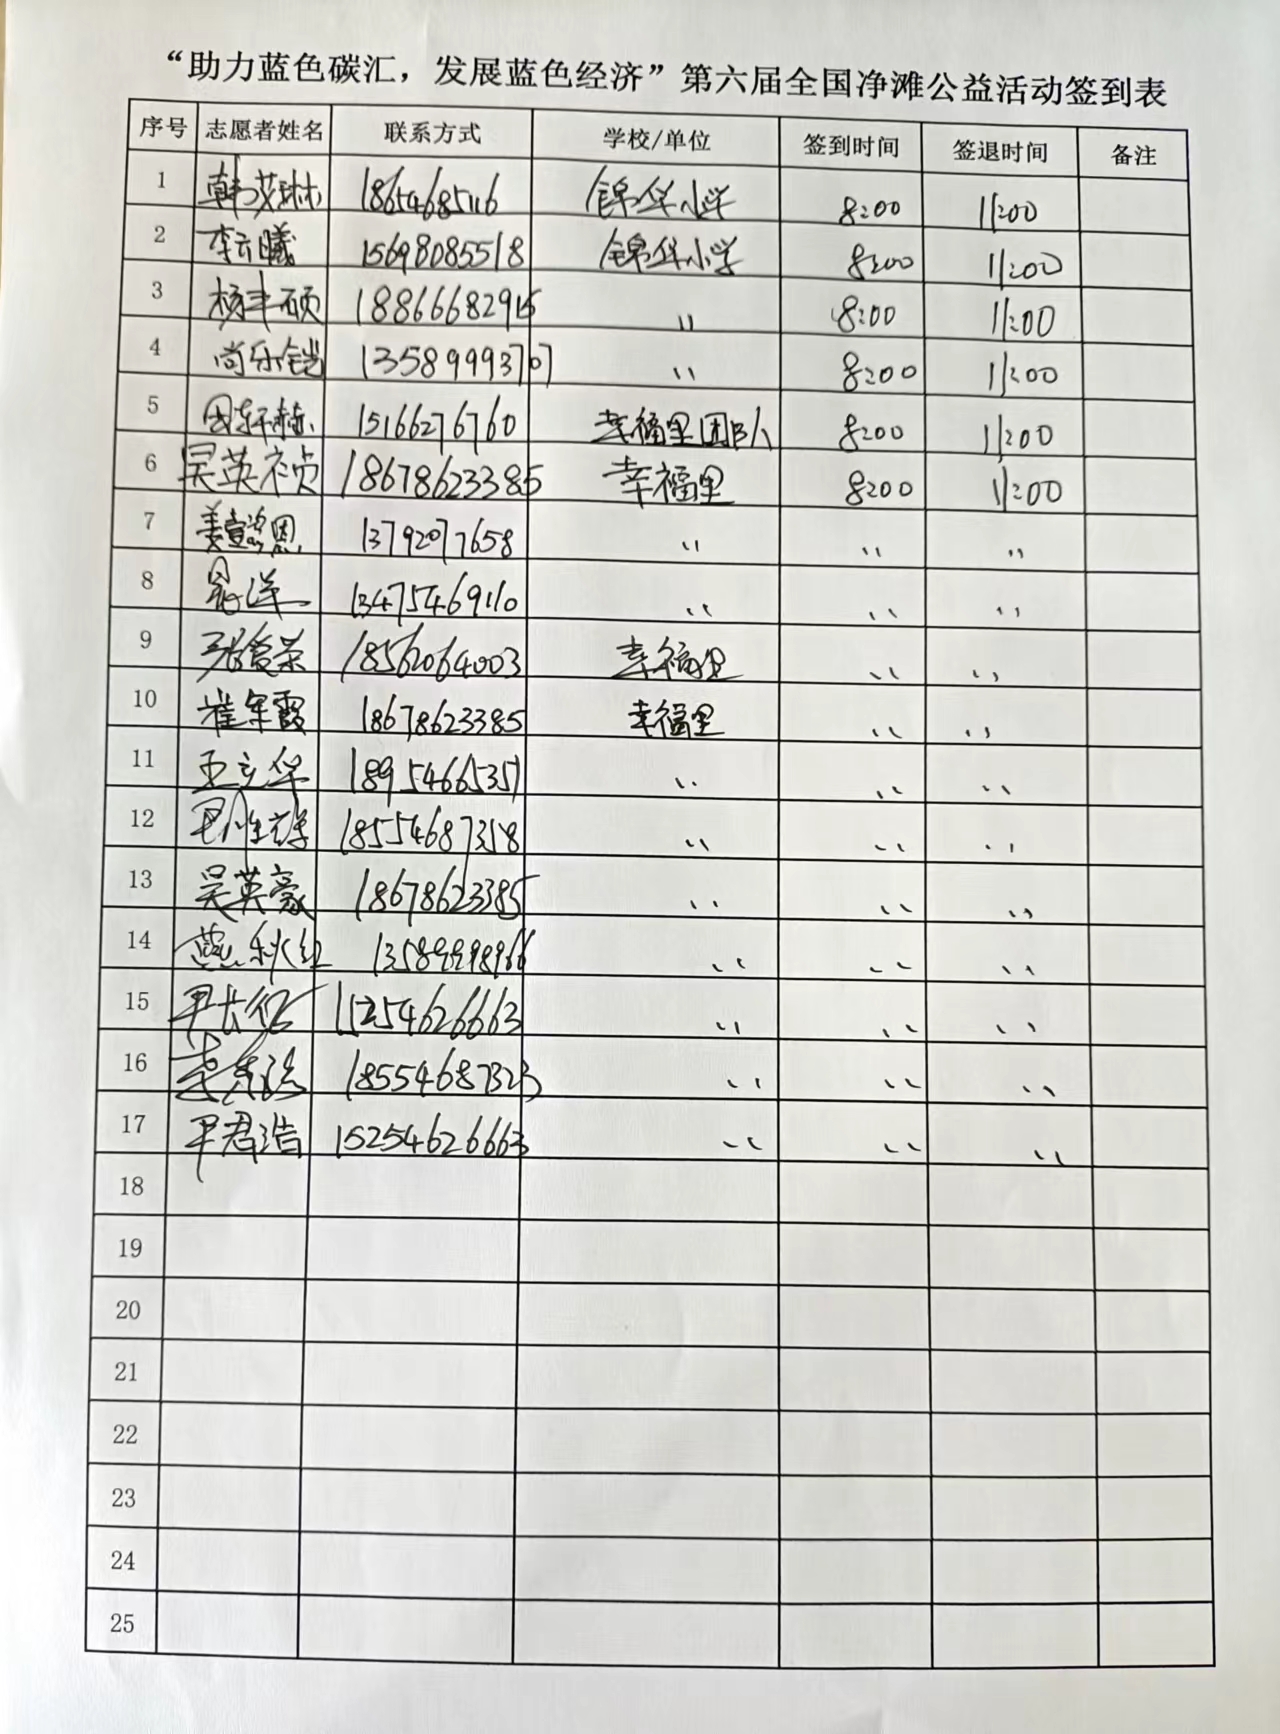 “助力蓝色碳汇，发展蓝色经济”第六届全国净滩公益活动签到表
序号 志愿者姓名 联系方式 学校/单位 签到时间 签退时间 备注
1 韩艾琳 18654685116 锦华小学 8:00 11:00
2 李云曦 15698085518 锦华小学 8:00 11:00
3 杨丰硕 18866682915 〃 8:00 11:00
4 尚乐铠 13589993707 〃 8:00 11:00
5 田轩赫 15166276760 幸福里团队 8:00 11:00
6 吴英祯 18678623385 幸福里 8:00 11:00
7 13792077658 〃 〃 〃
8 13475469110 〃 〃 〃
9 18562064003 幸福里 〃 〃
10 崔军霞 18678623385 幸福里 〃 〃
11 王立华 18954665351 〃 〃 〃
12 18554687358 〃 〃 〃
13 吴英豪 18678623385 〃 〃 〃
14 燕秋红 13589998966 〃 〃 〃
15 尹长征 15254626663 〃 〃 〃
16 18554687323 〃 〃 〃
17 尹君浩 15254626663 〃 〃 〃
18
19
20
21
22
23
24
25